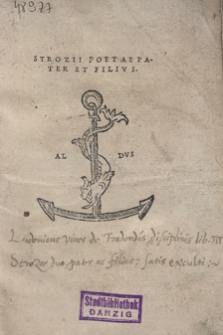 48977
STROZII POETAE PA-
TER ET FILIVS.
AL DVS
Ludovicus Vives de Tradendis disciplinis lib. III
Strozae duo, pater ac filius; satis exculti
Stadtbibliothek
DANZIG